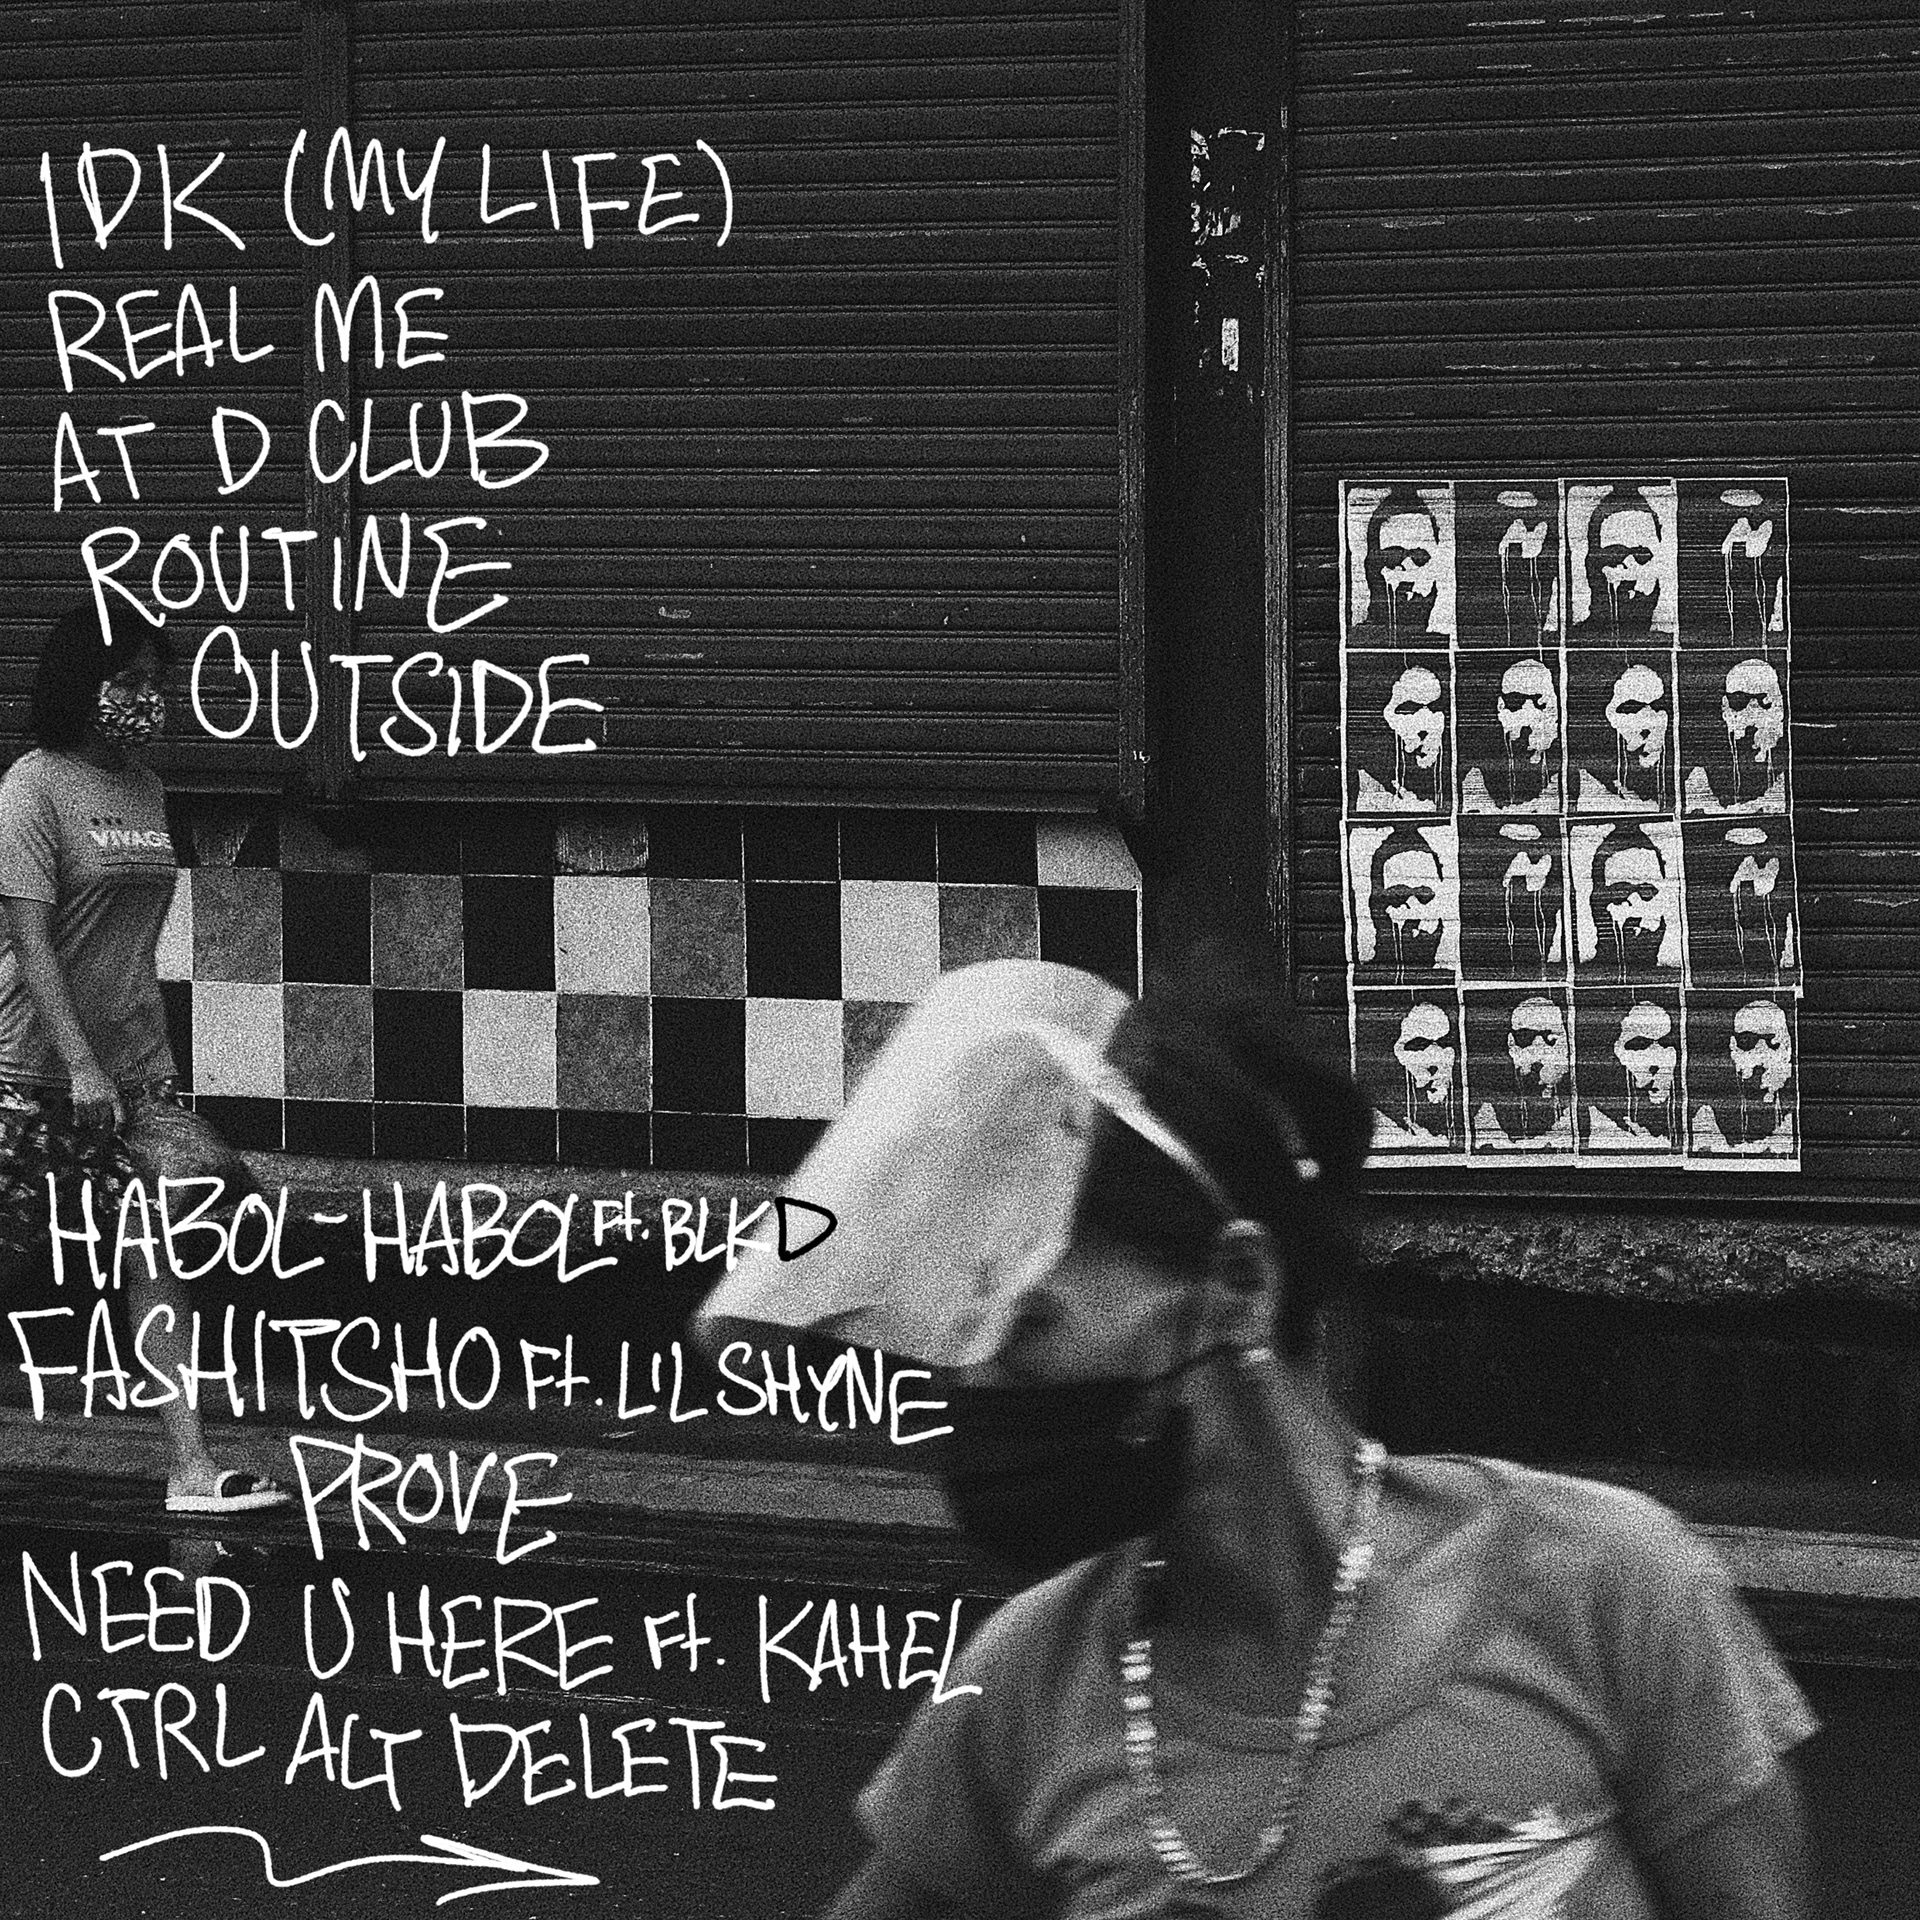 IDK (MY LIFE)
REAL ME
AT D CLUB
ROUTINE
OUTSIDE
VIVAGE
HABOL-HABOL Ft. BLKD
FASHITSHO Ft. LIL SHYNE
PROVE
NEED U HERE Ft. KAHEL
CTRL ALT DELETE